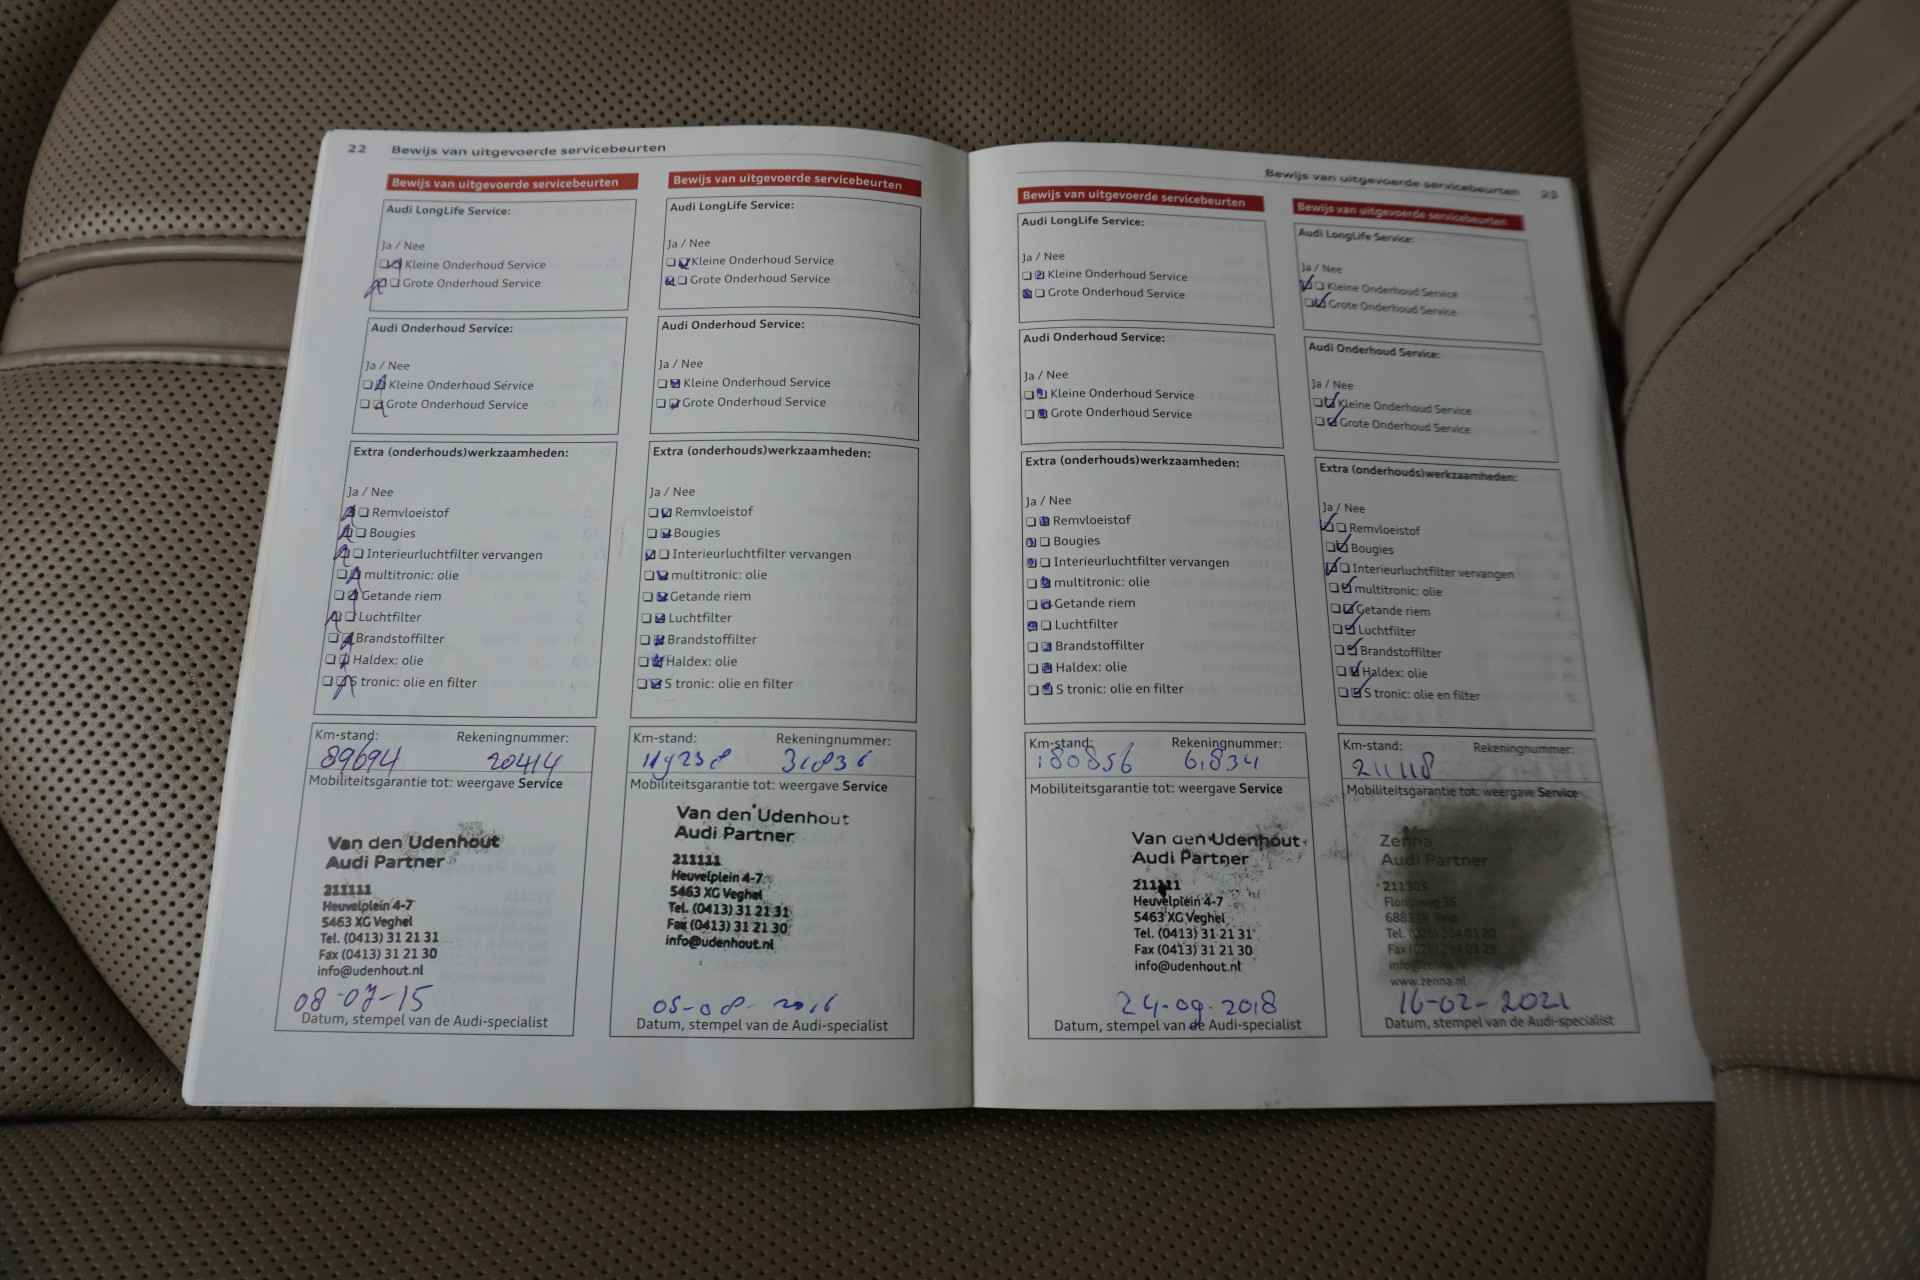 22 Bewijs van uitgevoerde servicebeurten
Bewijs van uitgevoerde servicebeurten
Audi LongLife Service:
Ja / Nee
Kleine Onderhoud Service
Grote Onderhoud Service
Audi Onderhoud Service:
Ja / Nee
Kleine Onderhoud Service
Grote Onderhoud Service
Extra (onderhouds)werkzaamheden:
Ja / Nee
Remvloeistof
Bougies
Interieurluchtfilter vervangen
multitronic: olie
Getande riem
Luchtfilter
Brandstoffilter
Haldex: olie
S tronic: olie en filter
Km-stand: Rekeningnummer:
89694 20414
Mobiliteitsgarantie tot: weergave Service
Van den Udenhout
Audi Partner
211111
Heuvelplein 4-7
5463 XG Veghel
Tel. (0413) 31 21 31
Fax (0413) 31 21 30
info@udenhout.nl
08-07-15
Datum, stempel van de Audi-specialist
Bewijs van uitgevoerde servicebeurten
Audi LongLife Service:
Ja / Nee
Kleine Onderhoud Service
Grote Onderhoud Service
Audi Onderhoud Service:
Ja / Nee
Kleine Onderhoud Service
Grote Onderhoud Service
Extra (onderhouds)werkzaamheden:
Ja / Nee
Remvloeistof
Bougies
Interieurluchtfilter vervangen
multitronic: olie
Getande riem
Luchtfilter
Brandstoffilter
Haldex: olie
S tronic: olie en filter
Km-stand: Rekeningnummer:
31836
Mobiliteitsgarantie tot: weergave Service
Van den Udenhout
Audi Partner
211111
Heuvelplein 4-7
5463 XG Veghel
Tel. (0413) 31 21 31
Fax (0413) 31 21 30
info@udenhout.nl
05-08-2016
Datum, stempel van de Audi-specialist
Bewijs van uitgevoerde servicebeurten 23
Bewijs van uitgevoerde servicebeurten
Audi LongLife Service:
Ja / Nee
Kleine Onderhoud Service
Grote Onderhoud Service
Audi Onderhoud Service:
Ja / Nee
Kleine Onderhoud Service
Grote Onderhoud Service
Extra (onderhouds)werkzaamheden:
Ja / Nee
Remvloeistof
Bougies
Interieurluchtfilter vervangen
multitronic: olie
Getande riem
Luchtfilter
Brandstoffilter
Haldex: olie
S tronic: olie en filter
Km-stand: Rekeningnummer:
180856 61834
Mobiliteitsgarantie tot: weergave Service
Van den Udenhout
Audi Partner
211111
Heuvelplein 4-7
5463 XG Veghel
Tel. (0413) 31 21 31
Fax (0413) 31 21 30
info@udenhout.nl
24-09-2018
Datum, stempel van de Audi-specialist
Bewijs van uitgevoerde servicebeurten
Audi LongLife Service:
Ja / Nee
Kleine Onderhoud Service
Grote Onderhoud Service
Audi Onderhoud Service:
Ja / Nee
Kleine Onderhoud Service
Grote Onderhoud Service
Extra (onderhouds)werkzaamheden:
Ja / Nee
Remvloeistof
Bougies
Interieurluchtfilter vervangen
multitronic: olie
Getande riem
Luchtfilter
Brandstoffilter
Haldex: olie
S tronic: olie en filter
Km-stand: Rekeningnummer:
211118
Mobiliteitsgarantie tot: weergave Service
Zenna
Audi Partner
Tel.
Fax
www.zenna.nl
16-02-2021
Datum, stempel van de Audi-specialist